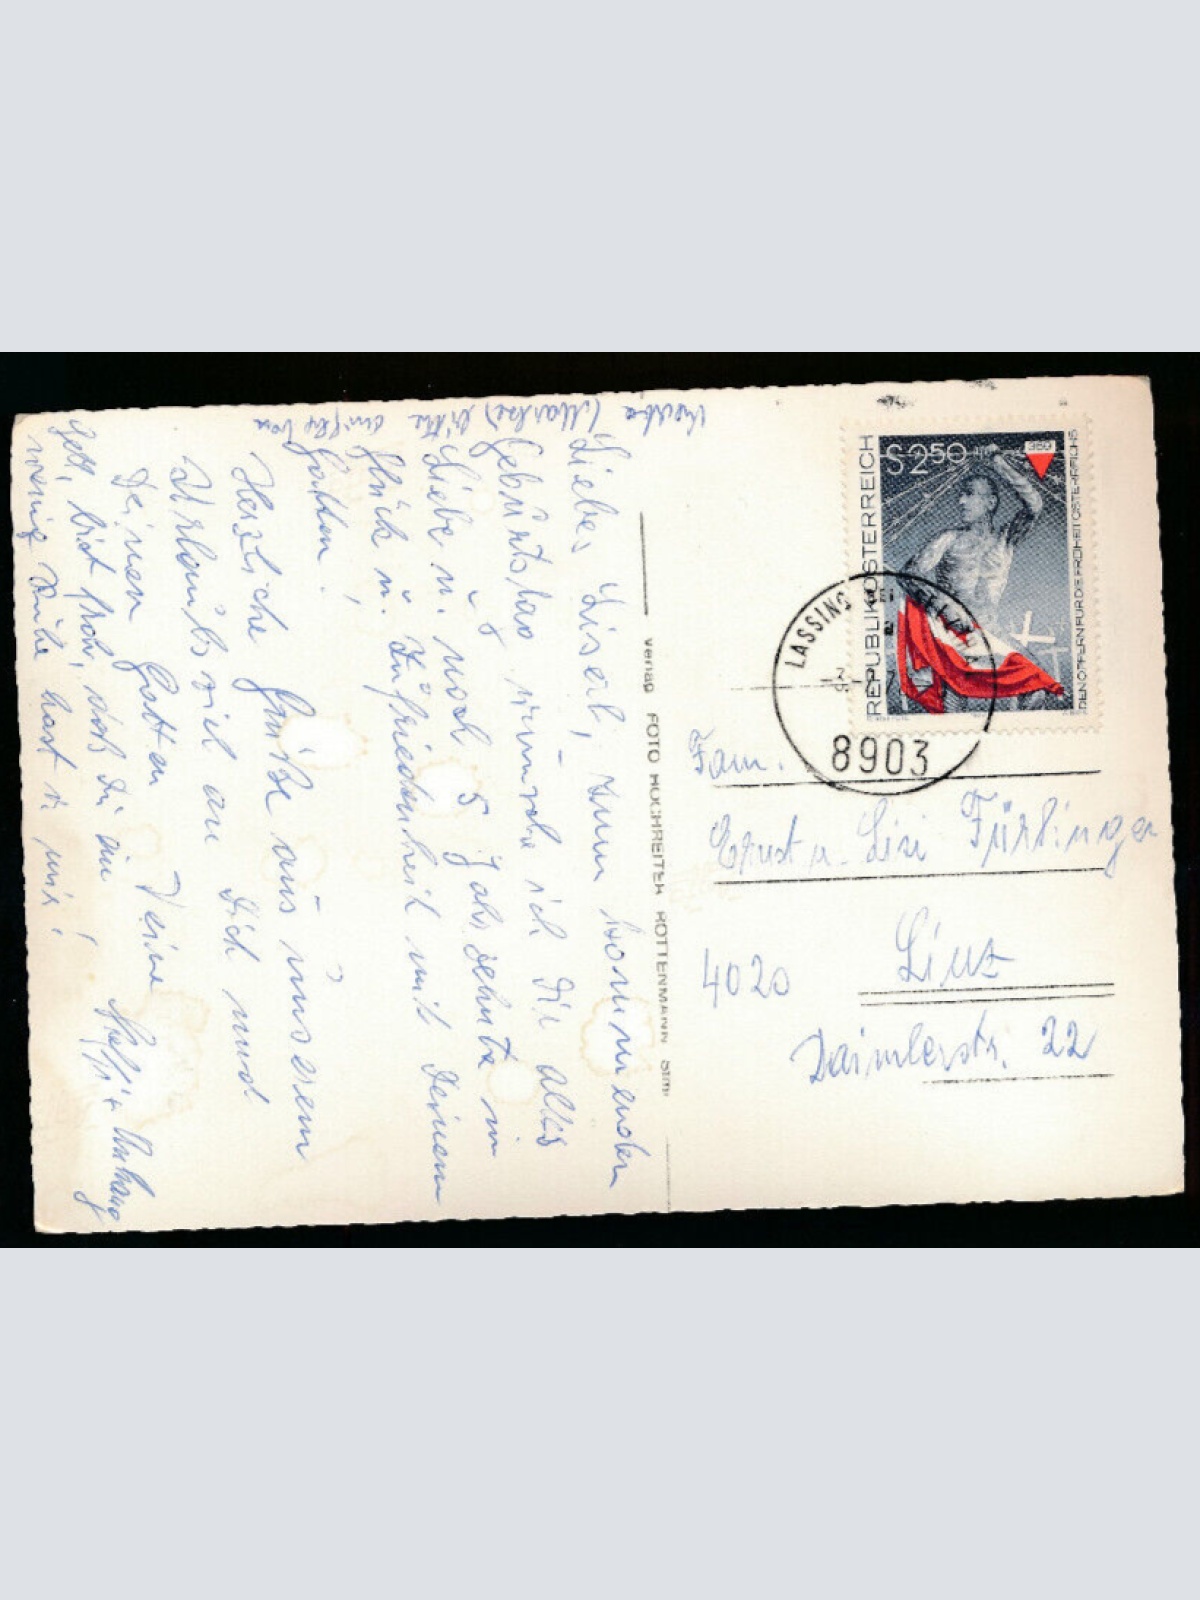 Liebes Liserl, zum kommenden
Geburtstag wünsche ich Dir alles
Liebe u. noch 5 Jahrzehnte in
Glück u. Zufriedenheit mit Deinem
Gatten!
Herzliche Grüße aus unserem
Urlaubsziel an Dich und
Deinen Gatten Deine
Gell, bist froh, daß Du ein
wenig Ruhe hast v. mir!
Verlag FOTO HOCHREITER ROTTENMANN
REPUBLIK ÖSTERREICH
S 2.50
DEN OPFERN FÜR DIE FREIHEIT ÖSTERREICHS
LASSING BEI SELZTHAL
8903
Fam.
Ernst u. Lisi Fürlinger
4020 Linz
Daimlerstr. 22